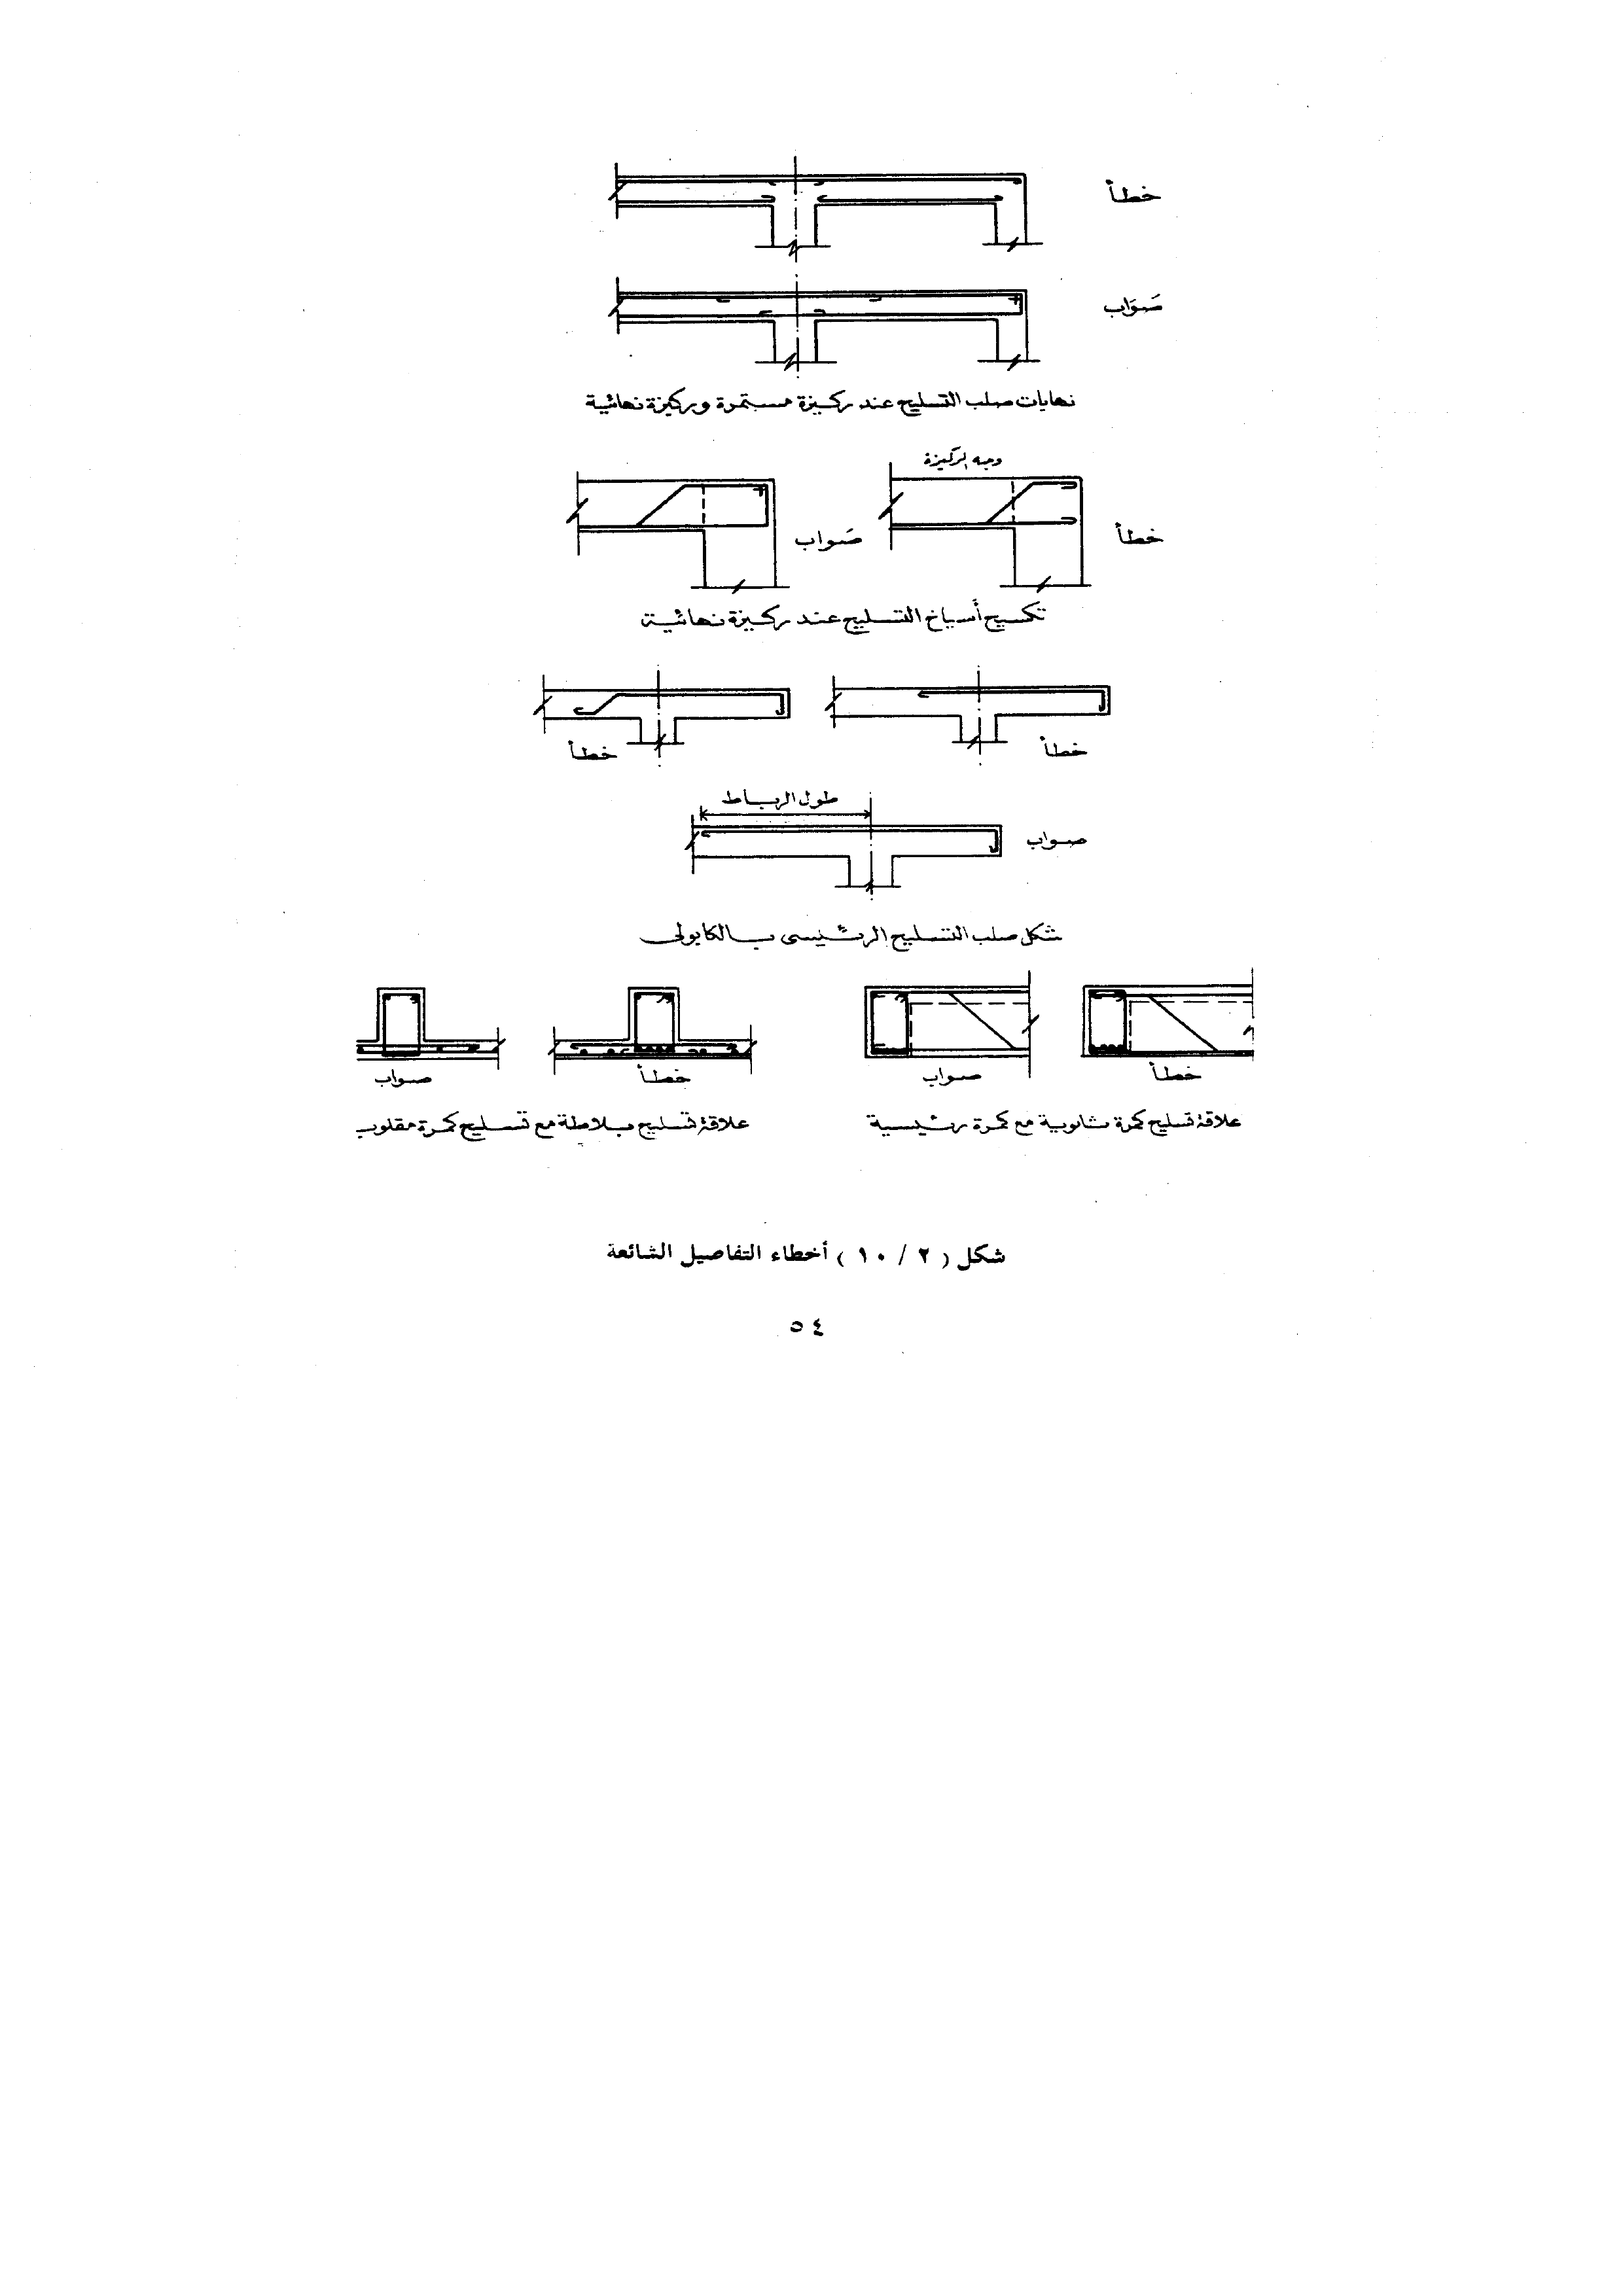 خطأ
صَوَاب
نهايات صلب التسليح عند ركيزة مستمرة وركيزة نهائية
وجه الركيزة
خطأ
صَواب
تكسيح أسياخ التسليح عند ركيزة نهائية
خطأ
خطأ
طول الرباط
صواب
شكل صلب التسليح الرئيسى بالكابولى
خطأ
صواب
خطأ
صواب
علاقة تسليح كمرة ثانوية مع كمرة رئيسية
علاقة تسليح بلاطة مع تسليح كمرة مقلوب
شكل ( ٢ / ١٠ ) أخطاء التفاصيل الشائعة
٥٤